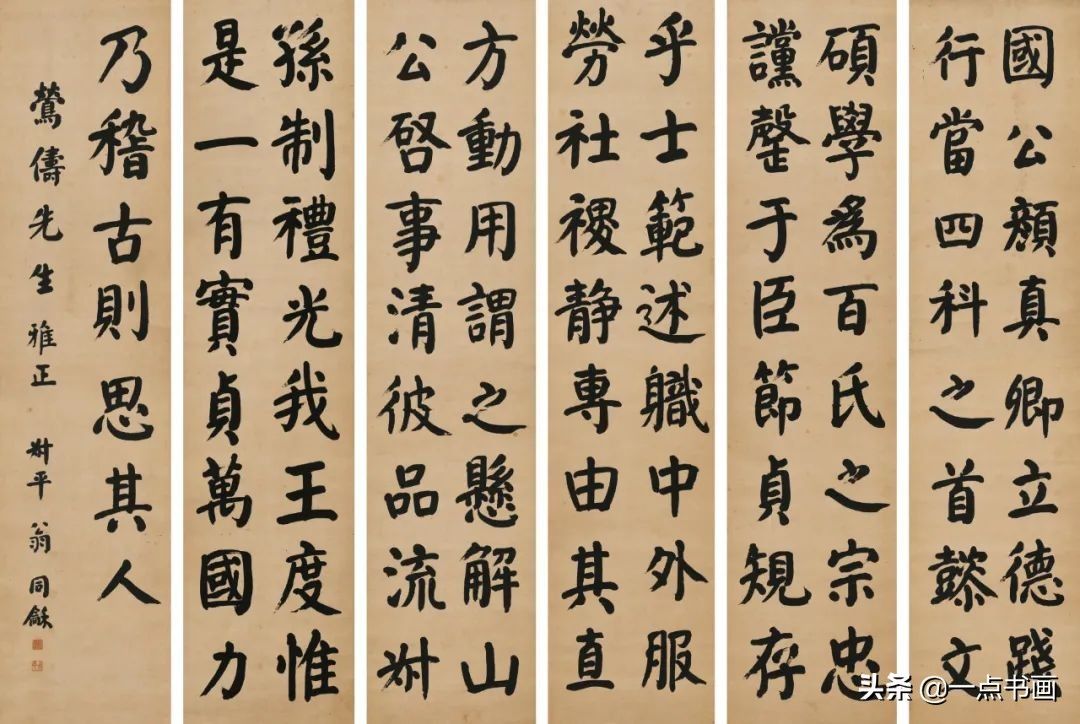 國公顔真卿立德踐
行當四科之首懿文
碩學為百氏之宗忠
讜罄于臣節貞規存
乎士範述職中外服
勞社稷静專由其直
方動用謂之懸解山
公啓事清彼品流叔
孫制禮光我王度惟
是一有實貞萬國力
乃稽古則思其人
鶯儔先生雅正 叔平翁同龢
头条 @一点书画